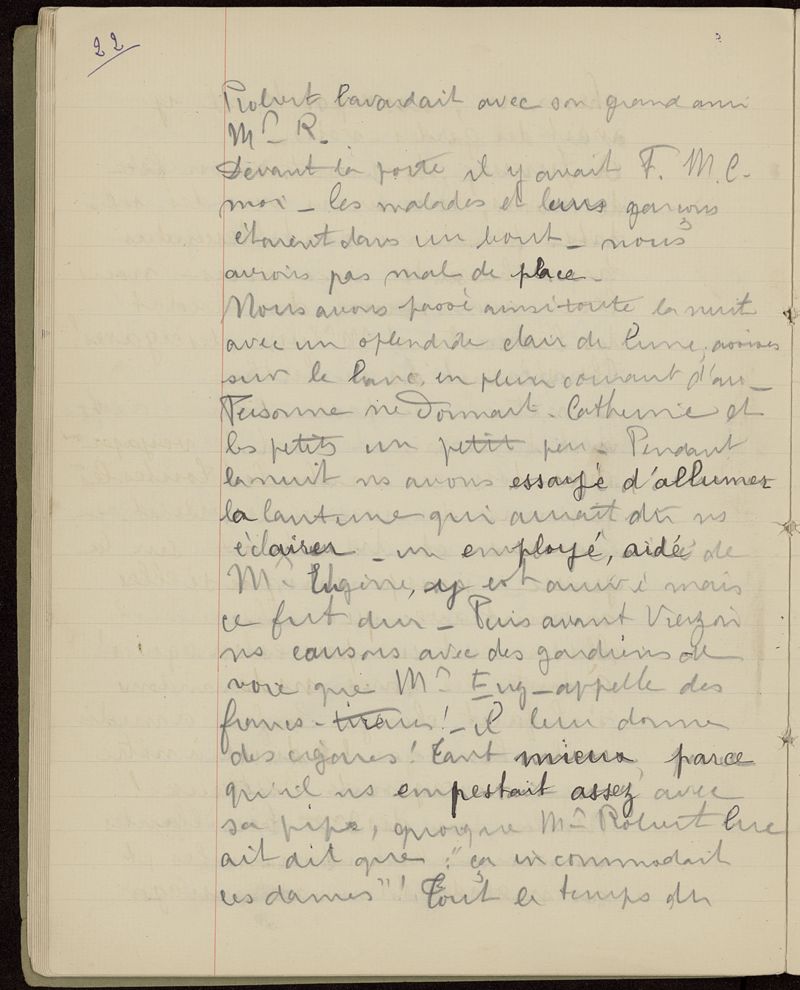 22
Robert bavardait avec son grand ami
Mr R.
Devant la porte il y avait F. M. C.
moi _ les malades et leurs garçons
étaient dans un bout _ nous
avions pas mal de place _
Nous avons passé ainsi toute la nuit
avec un splendide clair de lune, assises
sur le banc, en plein courant d'air _
Personne ne dormait. Catherine et
les petits un petit peu. Pendant
la nuit ns avons essayé d'allumer
la lanterne qui aurait dû ns
éclairer _ un employé, aidé de
Mr Eugène, y est arrivé mais
ce fut dur _ Puis avant Vierzon
ns causons avec des gardiens de
voie que Mr Eug _ appelle des
francs-tireurs ! _ il leur donne
des cigares ! Tant mieux, parce
qu'il ns empestait assez avec
sa pipe, quoique Mr Robert lui
ait dit que : "ça incommodait
ces dames" ! Tout le temps du